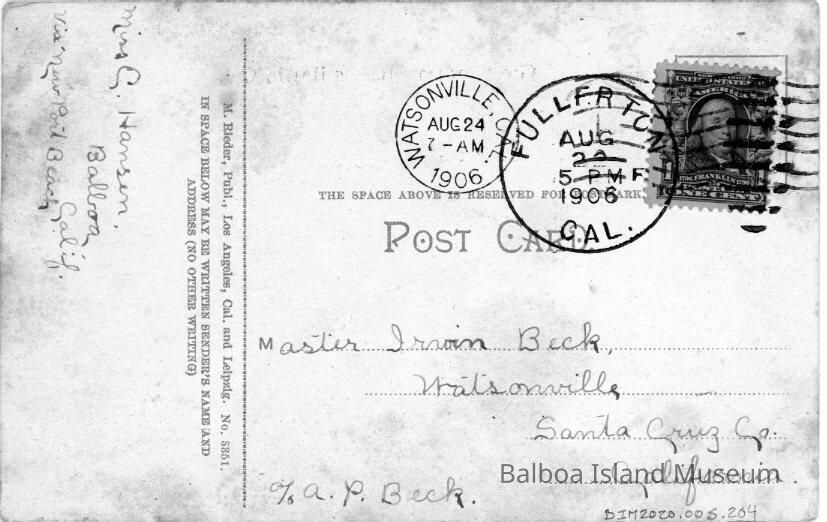 Miss G. Hansen.
Balboa
via New Port Beach Calif.
M. Rieder, Publ., Los Angeles, Cal. and Leipzig. No. 3351.
IN SPACE BELOW MAY BE WRITTEN SENDER'S NAME AND
ADDRESS (NO OTHER WRITING)
WATSONVILLE, CAL.
AUG 24
7 - AM
1906
FULLERTON
AUG
5 PM
1906
CAL.
UNITED STATES OF
AMERICA
FRANKLIN
ONE CENT
THE SPACE ABOVE IS RESERVED FOR POSTMARK.
POST CARD.
Master Irwin Beck,
Watsonville
Santa Cruz Co.
California.
c/o A. P. Beck.
Balboa Island Museum
BIM2020.005.204